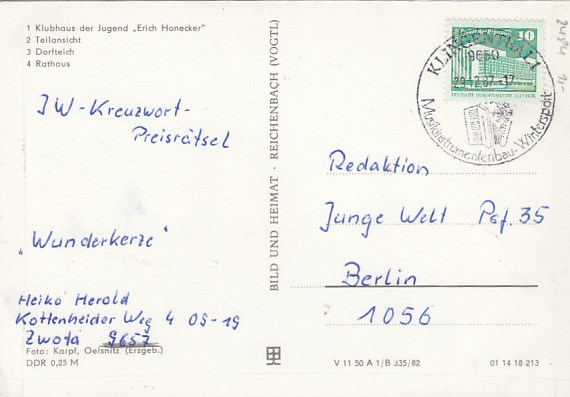 1 Klubhaus der Jugend „Erich Honecker"
2 Teilansicht
3 Dorfteich
4 Rathaus
JW-Kreuzwort-
Preisrätsel
„Wunderkerze"
Heiko Herold
Kottenheider Weg 4 09-19
Zwota 9657
Foto: Karpf, Oelsnitz (Erzgeb.)
DDR 0,25 M
BILD UND HEIMAT · REICHENBACH (VOGTL)
10
DEUTSCHE DEMOKRATISCHE REPUBLIK
KLINGENTHAL 1
9650
29.12.87-17
Musikinstrumentenbau-Wintersport
Redaktion
Junge Welt Psf. 35
Berlin
1056
V 11 50 A 1/B 335/82
01 14 18 213